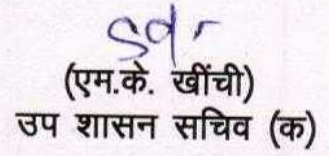 Sd/-
(एम.के. खींची)
उप शासन सचिव (क)